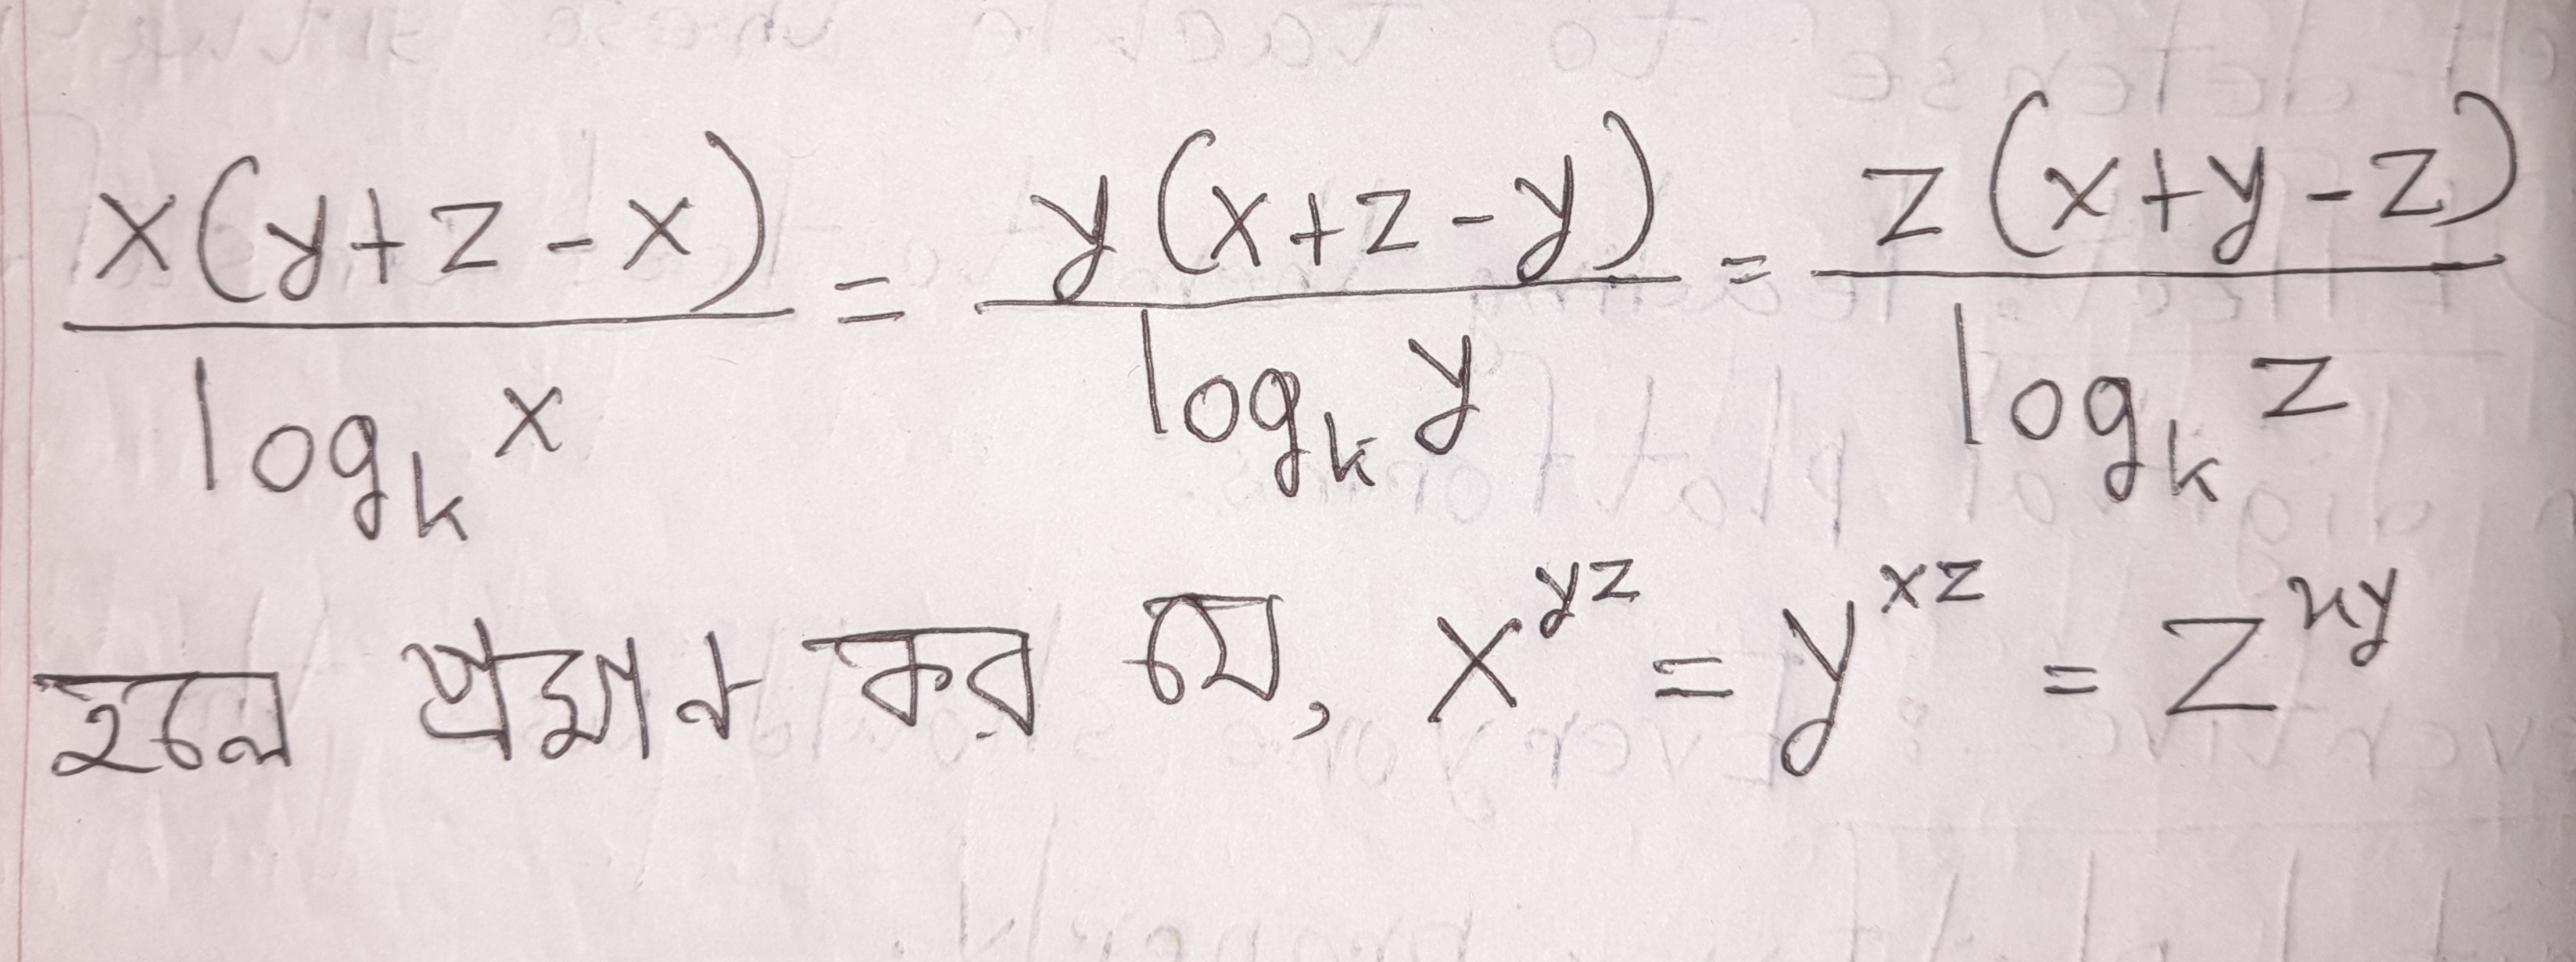 x(y+z-x)/log_k x = y(x+z-y)/log_k y = z(x+y-z)/log_k z
হলে প্রমান কর যে, x^yz = y^xz = z^xy